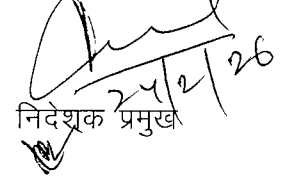 24/2/26
निदेशक प्रमुख